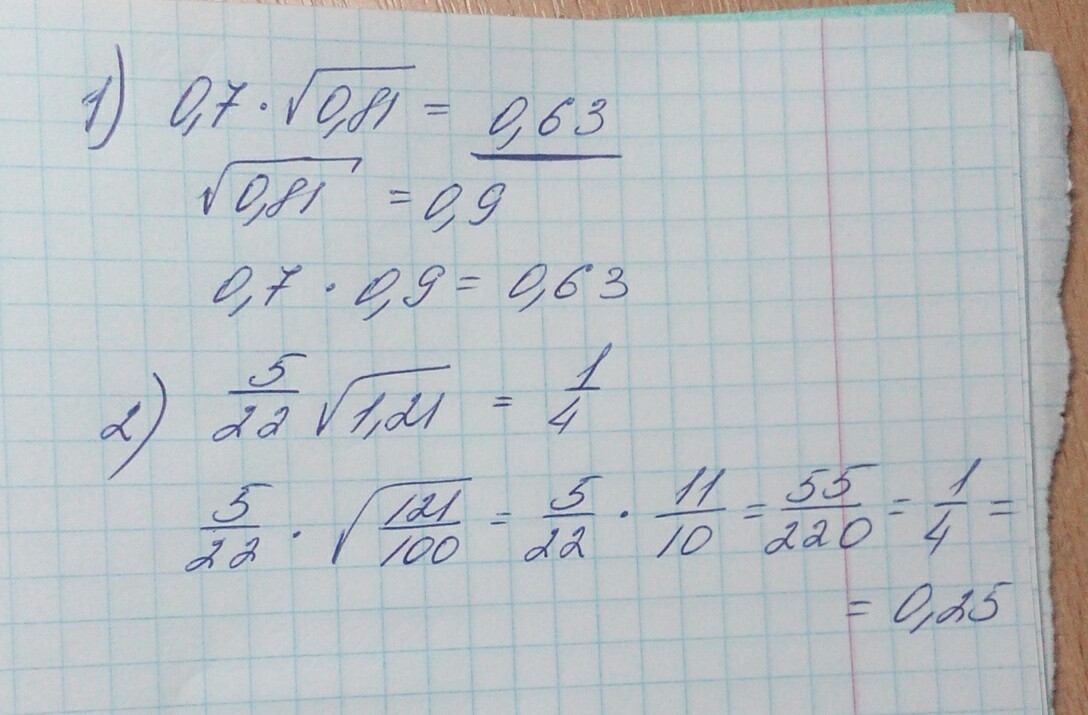 1) 0,7 · √0,81 = 0,63
√0,81 = 0,9
0,7 · 0,9 = 0,63
2) 5/22 √1,21 = 1/4
5/22 · √121/100 = 5/22 · 11/10 = 55/220 = 1/4 =
= 0,25